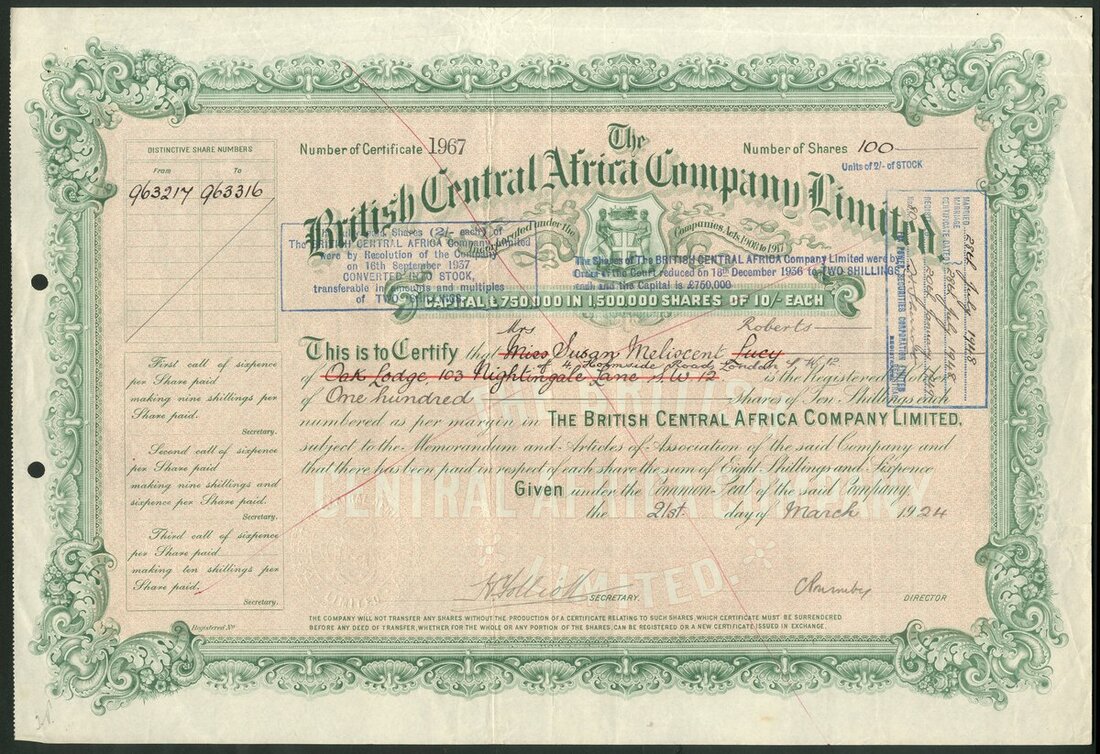 DISTINCTIVE SHARE NUMBERS
From To
963217 963316
Number of Certificate 1967
Number of Shares 100
Units of 2/- of STOCK
The
British Central Africa Company Limited
Incorporated under the Companies Acts 1908 to 1917
Shares (2/- each) of
The BRITISH CENTRAL AFRICA Company Limited
were by Resolution of the Company
on 16th September 1937
CONVERTED STOCK,
transferable in amounts and multiples
of TWO SHILLINGS
The Shares of The BRITISH CENTRAL AFRICA Company Limited were by
Order of the Court reduced on 18th December 1936 to TWO SHILLINGS
each and the Capital is £750,000
CAPITAL £750,000 IN 1,500,000 SHARES OF 10/- EACH
MARRIED 28th July 1948
MARRIAGE
CERTIFICATE DATED 28th July 1948
Mrs Roberts
This is to Certify that Miss Susan Meliscent Lucy
of 4, Hornside Road, London S.W.12
of Oak Lodge, 103 Nightingale Lane S.W.12 is the Registered Holder
of One hundred Shares of Ten Shillings each
numbered as per margin in THE BRITISH CENTRAL AFRICA COMPANY LIMITED,
subject to the Memorandum and Articles of Association of the said Company and
that there has been paid in respect of each share the sum of Eight Shillings and Sixpence
Given under the Common Seal of the said Company,
the 21st day of March 1924
First call of sixpence
per Share paid
making nine shillings per
Share paid.
Secretary.
Second call of sixpence
per Share paid
making nine shillings and
sixpence per Share paid.
Secretary.
Third call of sixpence
per Share paid
making ten shillings per
Share paid.
Secretary.
CENTRAL AFRICA COMPANY
LIMITED.
SECRETARY.
DIRECTOR
Registered No
THE COMPANY WILL NOT TRANSFER ANY SHARES WITHOUT THE PRODUCTION OF A CERTIFICATE RELATING TO SUCH SHARES, WHICH CERTIFICATE MUST BE SURRENDERED
BEFORE ANY DEED OF TRANSFER, WHETHER FOR THE WHOLE OR ANY PORTION OF THE SHARES, CAN BE REGISTERED OR A NEW CERTIFICATE ISSUED IN EXCHANGE.